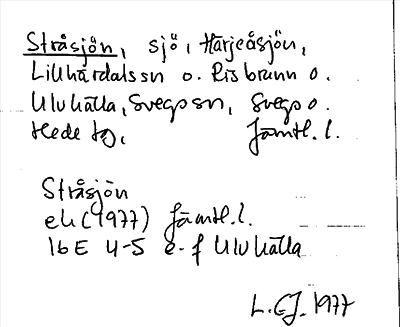 Stråsjön, sjö, Härjeåsjön,
Lillhärdals sn o. Risbrunn o.
Ulvkälla, Svegs sn, Svegs o.
Hede tg, Jämtl. l.
Stråsjön
ek (1977) Jämtl. l.
16E 4-5 e-f Ulvkälla
1977